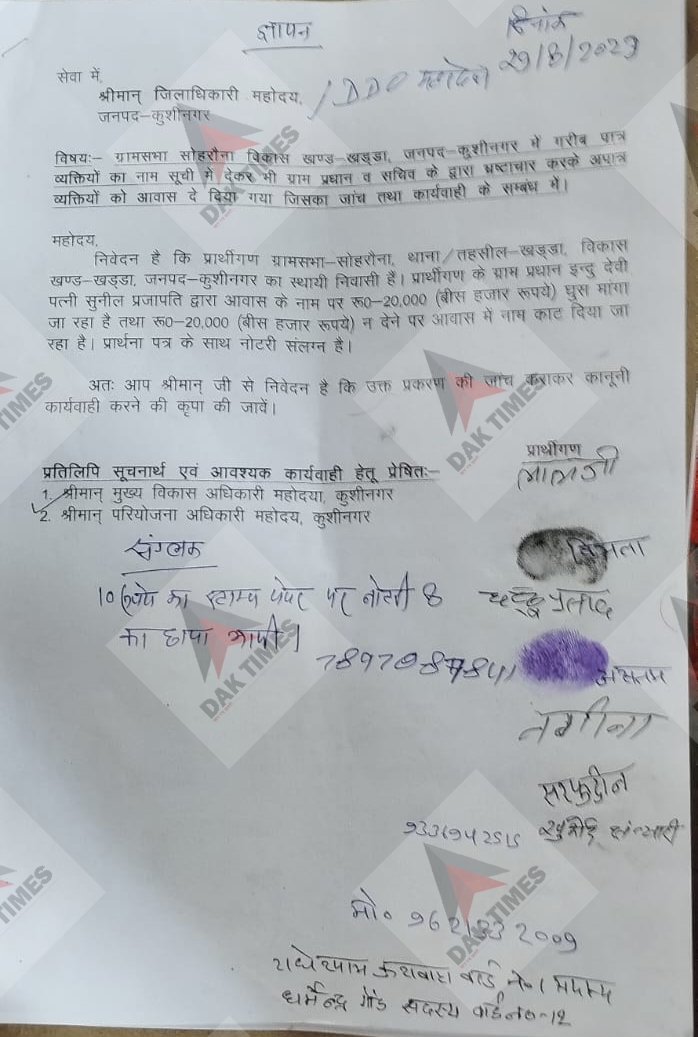 ज्ञापन
दिनांक
29/8/2023
सेवा में,
श्रीमान् जिलाधिकारी महोदय, / DDO महोदय
जनपद–कुशीनगर
विषयः– ग्रामसभा सोहरौना विकास खण्ड–खड्डा, जनपद–कुशीनगर में गरीब पात्र
व्यक्तियों का नाम सूची में देकर भी ग्राम प्रधान व सचिव के द्वारा भ्रष्टाचार करके अपात्र
व्यक्तियों को आवास दे दिया गया जिसका जांच तथा कार्यवाही के सम्बंध में।
महोदय,
निवेदन है कि प्रार्थीगण ग्रामसभा–सोहरौना, थाना/तहसील–खड्डा, विकास
खण्ड–खड्डा, जनपद–कुशीनगर का स्थायी निवासी हैं। प्रार्थीगण के ग्राम प्रधान इन्दु देवी
पत्नी सुनील प्रजापति द्वारा आवास के नाम पर रू0–20,000 (बीस हजार रूपये) घुस मांगा
जा रहा है तथा रू0–20,000 (बीस हजार रूपये) न देने पर आवास में नाम काट दिया जा
रहा है। प्रार्थना पत्र के साथ नोटरी संलग्न है।
अतः आप श्रीमान् जी से निवेदन है कि उक्त प्रकरण की जांच कराकर कानूनी
कार्यवाही करने की कृपा की जावें।
प्रार्थीगण
लालजी
प्रतिलिपि सूचनार्थ एवं आवश्यक कार्यवाही हेतू प्रेषितः–
1. श्रीमान् मुख्य विकास अधिकारी महोदया, कुशीनगर
2. श्रीमान् परियोजना अधिकारी महोदय, कुशीनगर
संग्लक
10 रूपये का स्टाम्प पेपर पर नोटरी
का छाया कापी।
प्रसाद
असलम
नगीना
सरफुद्दीन
मो०
धर्मेन्द्र गोंड सदस्य वार्ड न0-12
DAK TIMES
DAK TIMES
DAK TIMES
DAK TIMES
DAK TIMES
DAK TIMES
DAK TIMES
DAK TIMES